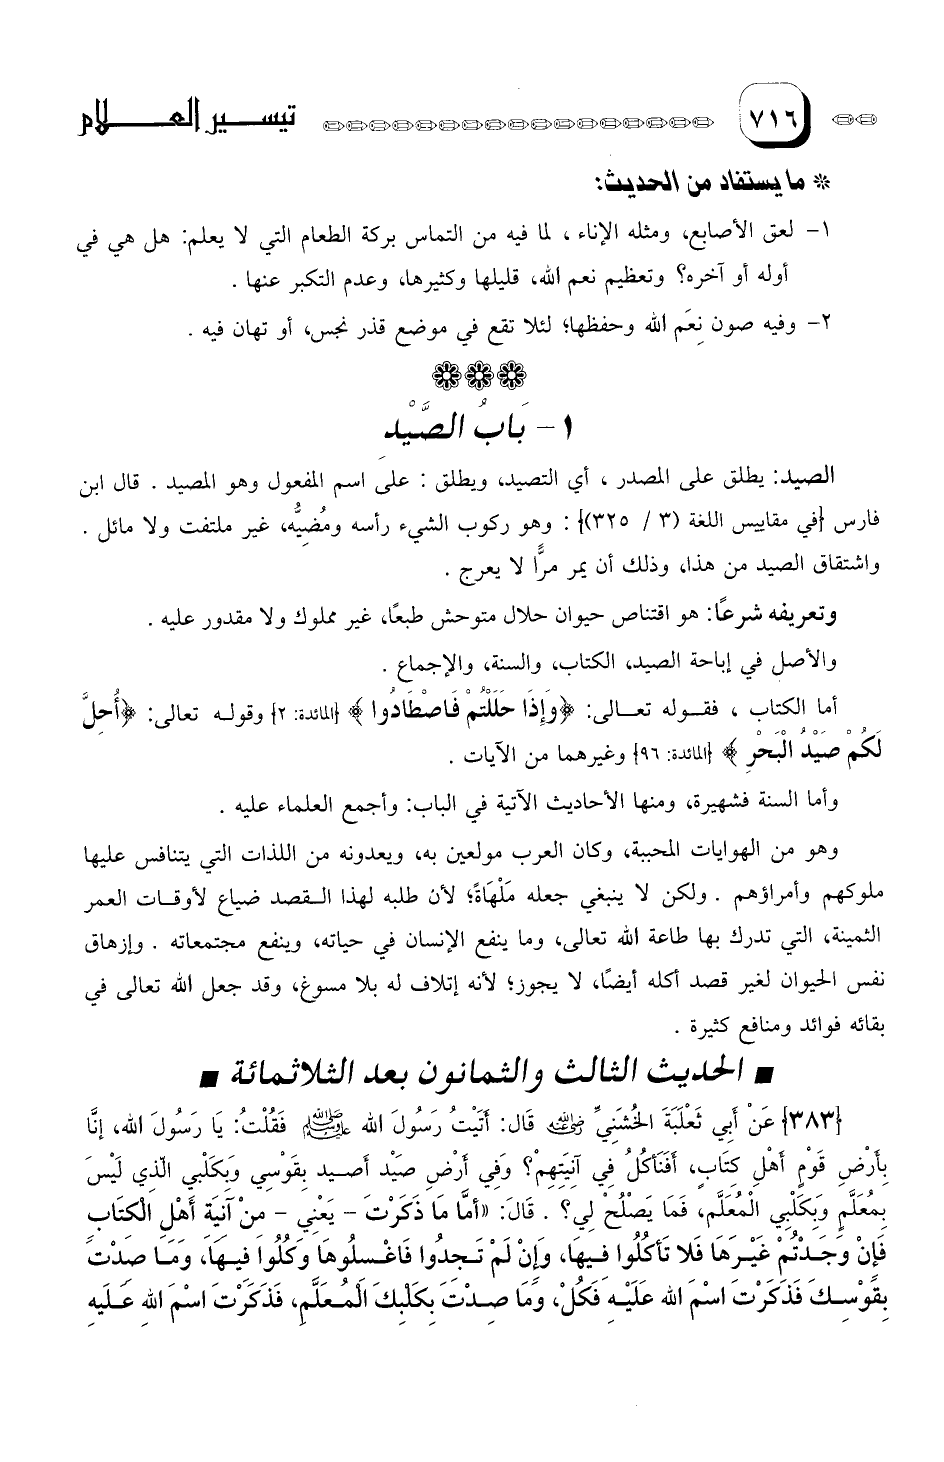 ٧١٦
تيسير العلام
* ما يستفاد من الحديث:
١- لعق الأصابع، ومثله الإناء ، لما فيه من التماس بركة الطعام التي لا يعلم: هل هي في
أوله أو آخره؟ وتعظيم نعم الله، قليلها وكثيرها، وعدم التكبر عنها .
٢- وفيه صون نِعَم الله وحفظها؛ لئلا تقع في موضع قذر نجس، أو تهان فيه .
١- بَابُ الصَّيْدِ
الصيد: يطلق على المصدر ، أي التصيد، ويطلق : على اسم المفعول وهو المصيد . قال ابن
فارس {في مقاييس اللغة (٣ / ٣٢٥)} : وهو ركوب الشيء رأسه ومُضيُّه، غير ملتفت ولا مائل .
واشتقاق الصيد من هذا، وذلك أن يمر مرًّا لا يعرج .
وتعريفه شرعًا: هو اقتناص حيوان حلال متوحش طبعًا، غير مملوك ولا مقدور عليه .
والأصل في إباحة الصيد، الكتاب، والسنة، والإجماع .
أما الكتاب ، فقوله تعالى: ﴿وَإِذَا حَلَلْتُمْ فَاصْطَادُوا﴾ {المائدة: ٢} وقوله تعالى: ﴿أُحِلَّ
لَكُمْ صَيْدُ الْبَحْرِ﴾ {المائدة: ٩٦} وغيرهما من الآيات .
وأما السنة فشهيرة، ومنها الأحاديث الآتية في الباب: وأجمع العلماء عليه .
وهو من الهوايات المحببة، وكان العرب مولعين به، ويعدونه من اللذات التي يتنافس عليها
ملوكهم وأمراؤهم . ولكن لا ينبغي جعله مَلْهَاةً؛ لأن طلبه لهذا القصد ضياع لأوقات العمر
الثمينة، التي تدرك بها طاعة الله تعالى، وما ينفع الإنسان في حياته، وينفع مجتمعاته . وإزهاق
نفس الحيوان لغير قصد أكله أيضًا، لا يجوز؛ لأنه إتلاف له بلا مسوغ، وقد جعل الله تعالى في
بقائه فوائد ومنافع كثيرة .
■ الحديث الثالث والثمانون بعد الثلاثمائة ■
{٣٨٣} عَنْ أَبِي ثَعْلَبَةَ الخُشَنِيِّ رضي الله عنه قَالَ: أَتَيْتُ رَسُولَ الله ﷺ فَقُلْتُ: يَا رَسُولَ الله، إِنَّا
بِأَرْضِ قَوْمٍ أَهْلِ كِتَابٍ، أَفَنَأْكُلُ فِي آنِيَتِهِمْ؟ وَفِي أَرْضِ صَيْدٍ أَصِيدُ بِقَوْسِي وَبِكَلْبِي الّذي لَيْسَ
بِمُعَلَّمٍ وَبِكَلْبِي الْمُعَلَّمِ، فَمَا يَصْلُحُ لِي؟ . قَالَ: «أَمَّا مَا ذَكَرْتَ – يَعْنِي – مِنْ آنِيَةِ أَهْلِ الْكِتَابِ
فَإِنْ وَجَدْتُمْ غَيْرَهَا فَلا تَأْكُلُوا فِيهَا، وَإِنْ لَمْ تَجِدُوا فَاغْسِلُوهَا وَكُلُوا فِيهَا، وَمَا صِدْتَ
بِقَوْسِكَ فَذَكَرْتَ اسْمَ الله عَلَيْهِ فَكُلْ، وَمَا صِدْتَ بِكَلْبِكَ الْمُعَلَّمِ، فَذَكَرْتَ اسْمَ الله عَلَيْهِ